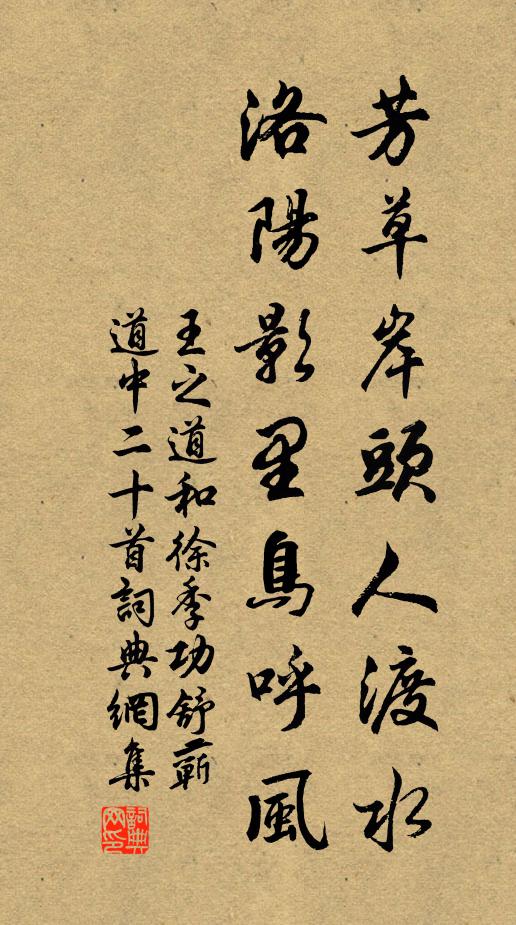 芳草岸頭人渡水
洛陽影里鳥呼風
王之道和徐季功舒蘄
道中二十首詞典網集
詞典网印